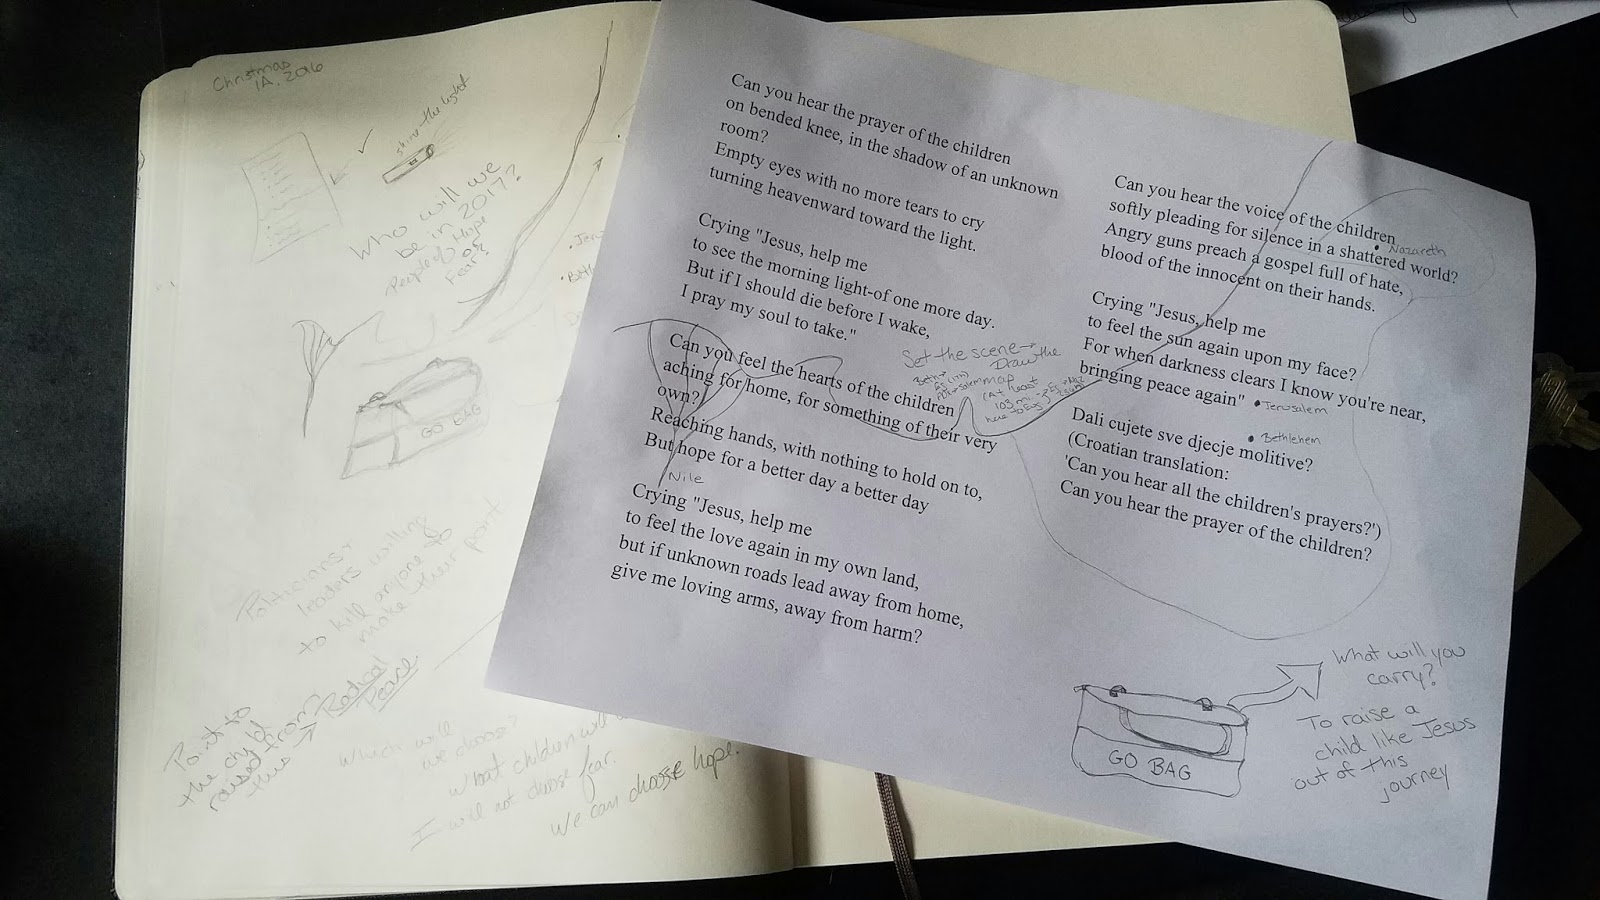 Christmas
1A, 2016
shine the light
Who will we
be in 2017?
People of Hope
or
Fear?
GO BAG
Politicians +
leaders willing
to kill anyone to
make their point
Point to
the child
raised from
this →
Radical
Peace
Which will
we choose?
What children will
I will not choose fear.
We can choose hope.
Can you hear the prayer of the children
on bended knee, in the shadow of an unknown
room?
Empty eyes with no more tears to cry
turning heavenward toward the light.
Crying "Jesus, help me
to see the morning light-of one more day.
But if I should die before I wake,
I pray my soul to take."
Can you feel the hearts of the children
aching for home, for something of their very
own?
Reaching hands, with nothing to hold on to,
But hope for a better day a better day
Nile
Crying "Jesus, help me
to feel the love again in my own land,
but if unknown roads lead away from home,
give me loving arms, away from harm?
Set the scene →
Draw the
map
(At least
103 mi.
Can you hear the voice of the children
softly pleading for silence in a shattered world?
• Nazareth
Angry guns preach a gospel full of hate,
blood of the innocent on their hands.
Crying "Jesus, help me
to feel the sun again upon my face?
For when darkness clears I know you're near,
bringing peace again"
• Jerusalem
Dali cujete sve djecje molitive?
• Bethlehem
(Croatian translation:
'Can you hear all the children's prayers?')
Can you hear the prayer of the children?
GO BAG
What will you
carry?
To raise a
child like Jesus
out of this
journey